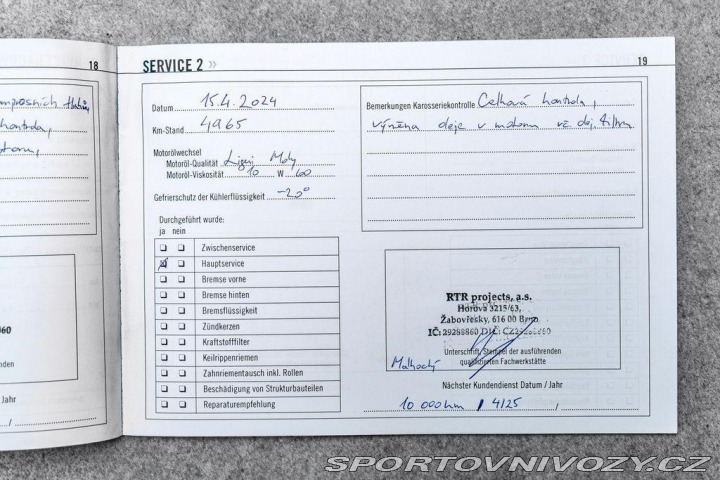 18
kontrola,
/60
Jahr
SERVICE 2 »
19
Datum 15.4.2024
Km-Stand 4965
Motorölwechsel
Motoröl-Qualität Liqui Moly
Motoröl-Viskosität 10 W 60
Gefrierschutz der Kühlerflüssigkeit -20°
Durchgeführt wurde:
ja nein
Zwischenservice
Hauptservice
Bremse vorne
Bremse hinten
Bremsflüssigkeit
Zündkerzen
Kraftstofffilter
Keilrippenriemen
Zahnriementausch inkl. Rollen
Beschädigung von Strukturbauteilen
Reparaturempfehlung
Bemerkungen Karosseriekontrolle Celková kontrola,
výměna oleje v motoru vč. olej. filtru
RTR projects, a.s.
Horova 3215/63,
Žabovřesky, 616 00 Brno
IČ: 29288860 DIČ:
Unterschrift, Stempel der ausführenden
qualifizierten Fachwerkstätte
Nächster Kundendienst Datum / Jahr
10 000km / 4/25 /
SPORTOVNIVOZY.CZ